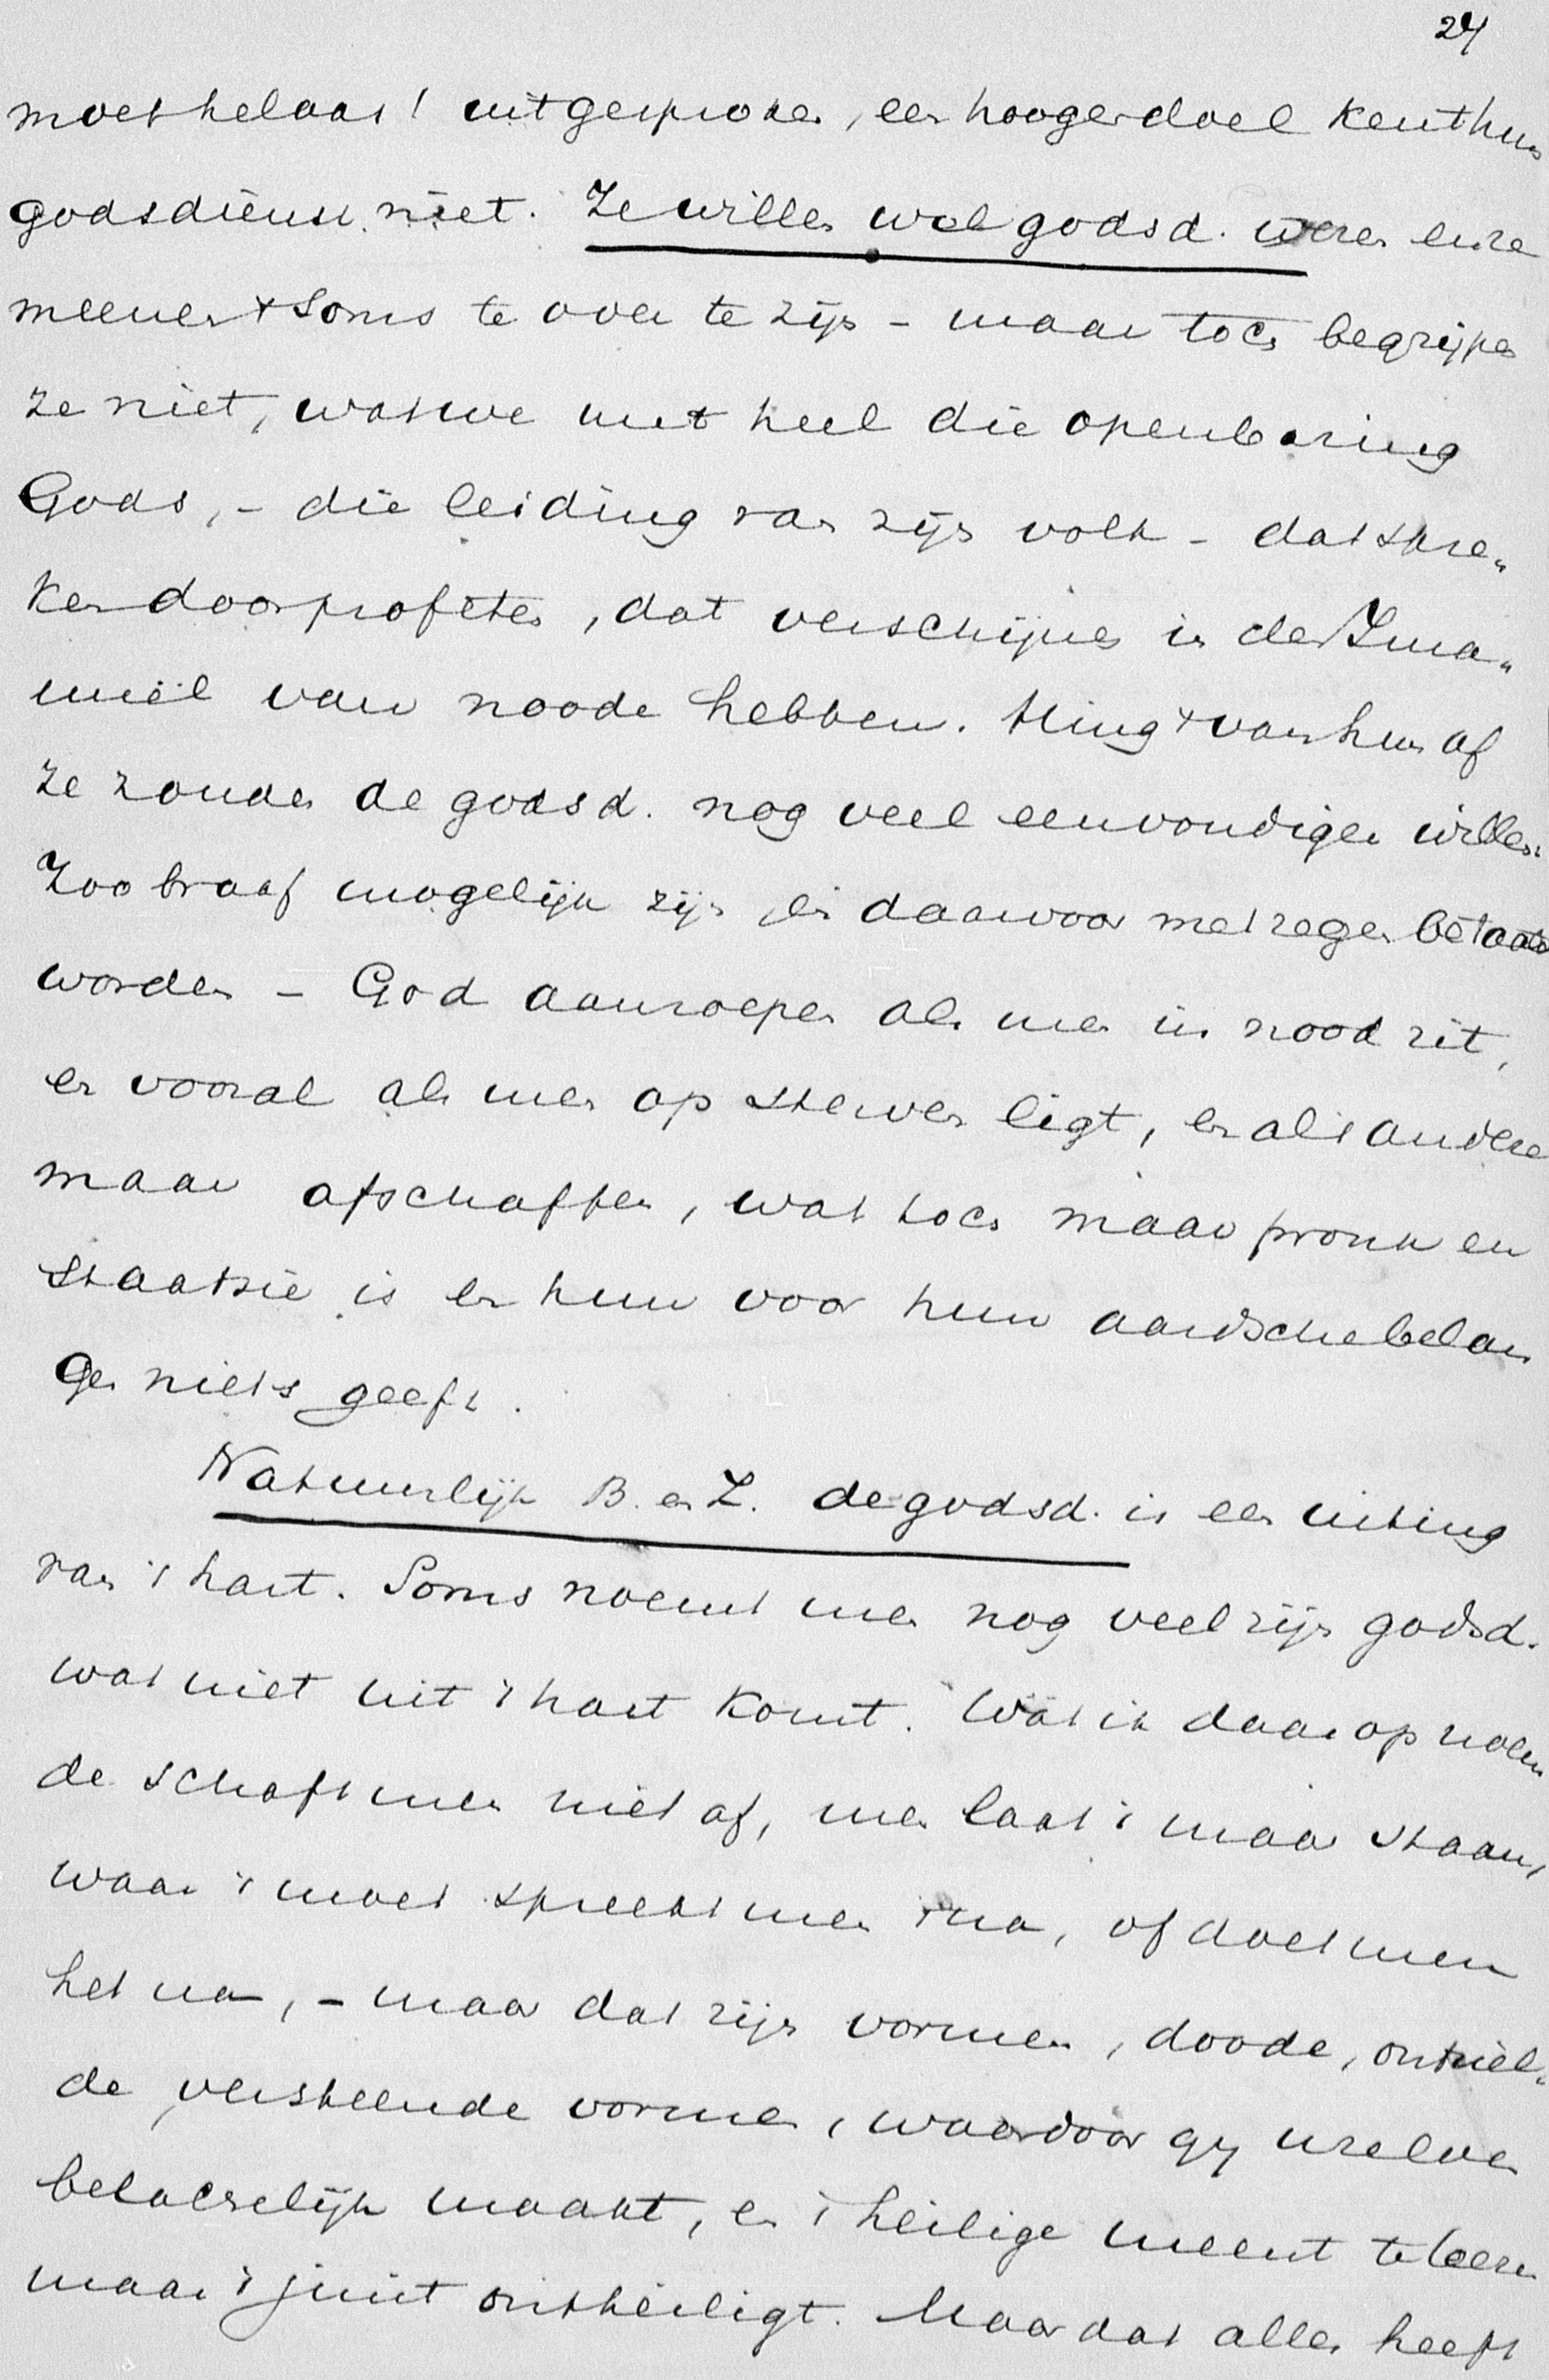 24
moet helaas! uitgesproken, een hooger doel kent hun
godsdienst niet. Ze willen wel godsd. wezen en ze
meenen 't soms te over te zijn - maar toch begrijpen
ze niet, wat we met heel die openbaring
Gods, - die leiding van zijn volk - dat spre„
ken door profeten, dat verschijnen in den Ima„
nuël van noode hebben. Hing 't van hun af
ze zouden de godsd. nog veel eenvoudiger willen.
Zoo braaf mogelijk zijn, en daarvoor met zegen betaald
worden - God aanroepen als men in nood zit,
en vooral als men op sterven ligt, en al 't andere
maar afschaffen, wat toch maar pronk en
staatsie is en hun voor hun aardsche belan
gen niets geeft.
Natuurlijk B. en Z. de godsd. is een uiting
van 't hart. Soms noemt men nog veel zijn godsd.
wat niet uit 't hart komt. Wat ik daar op noem
de schaft men niet af, men laat 't maar staan,
waar 't moet spreekt men 't na, of doet men
het na, - maar dat zijn vormen, doode, ontziel„
de, versteende vormen, waardoor gij uzelven
belachelijk maakt, en 't heilige meent te leeren
maar 't juist ontheiligt. Maar dat alles heeft